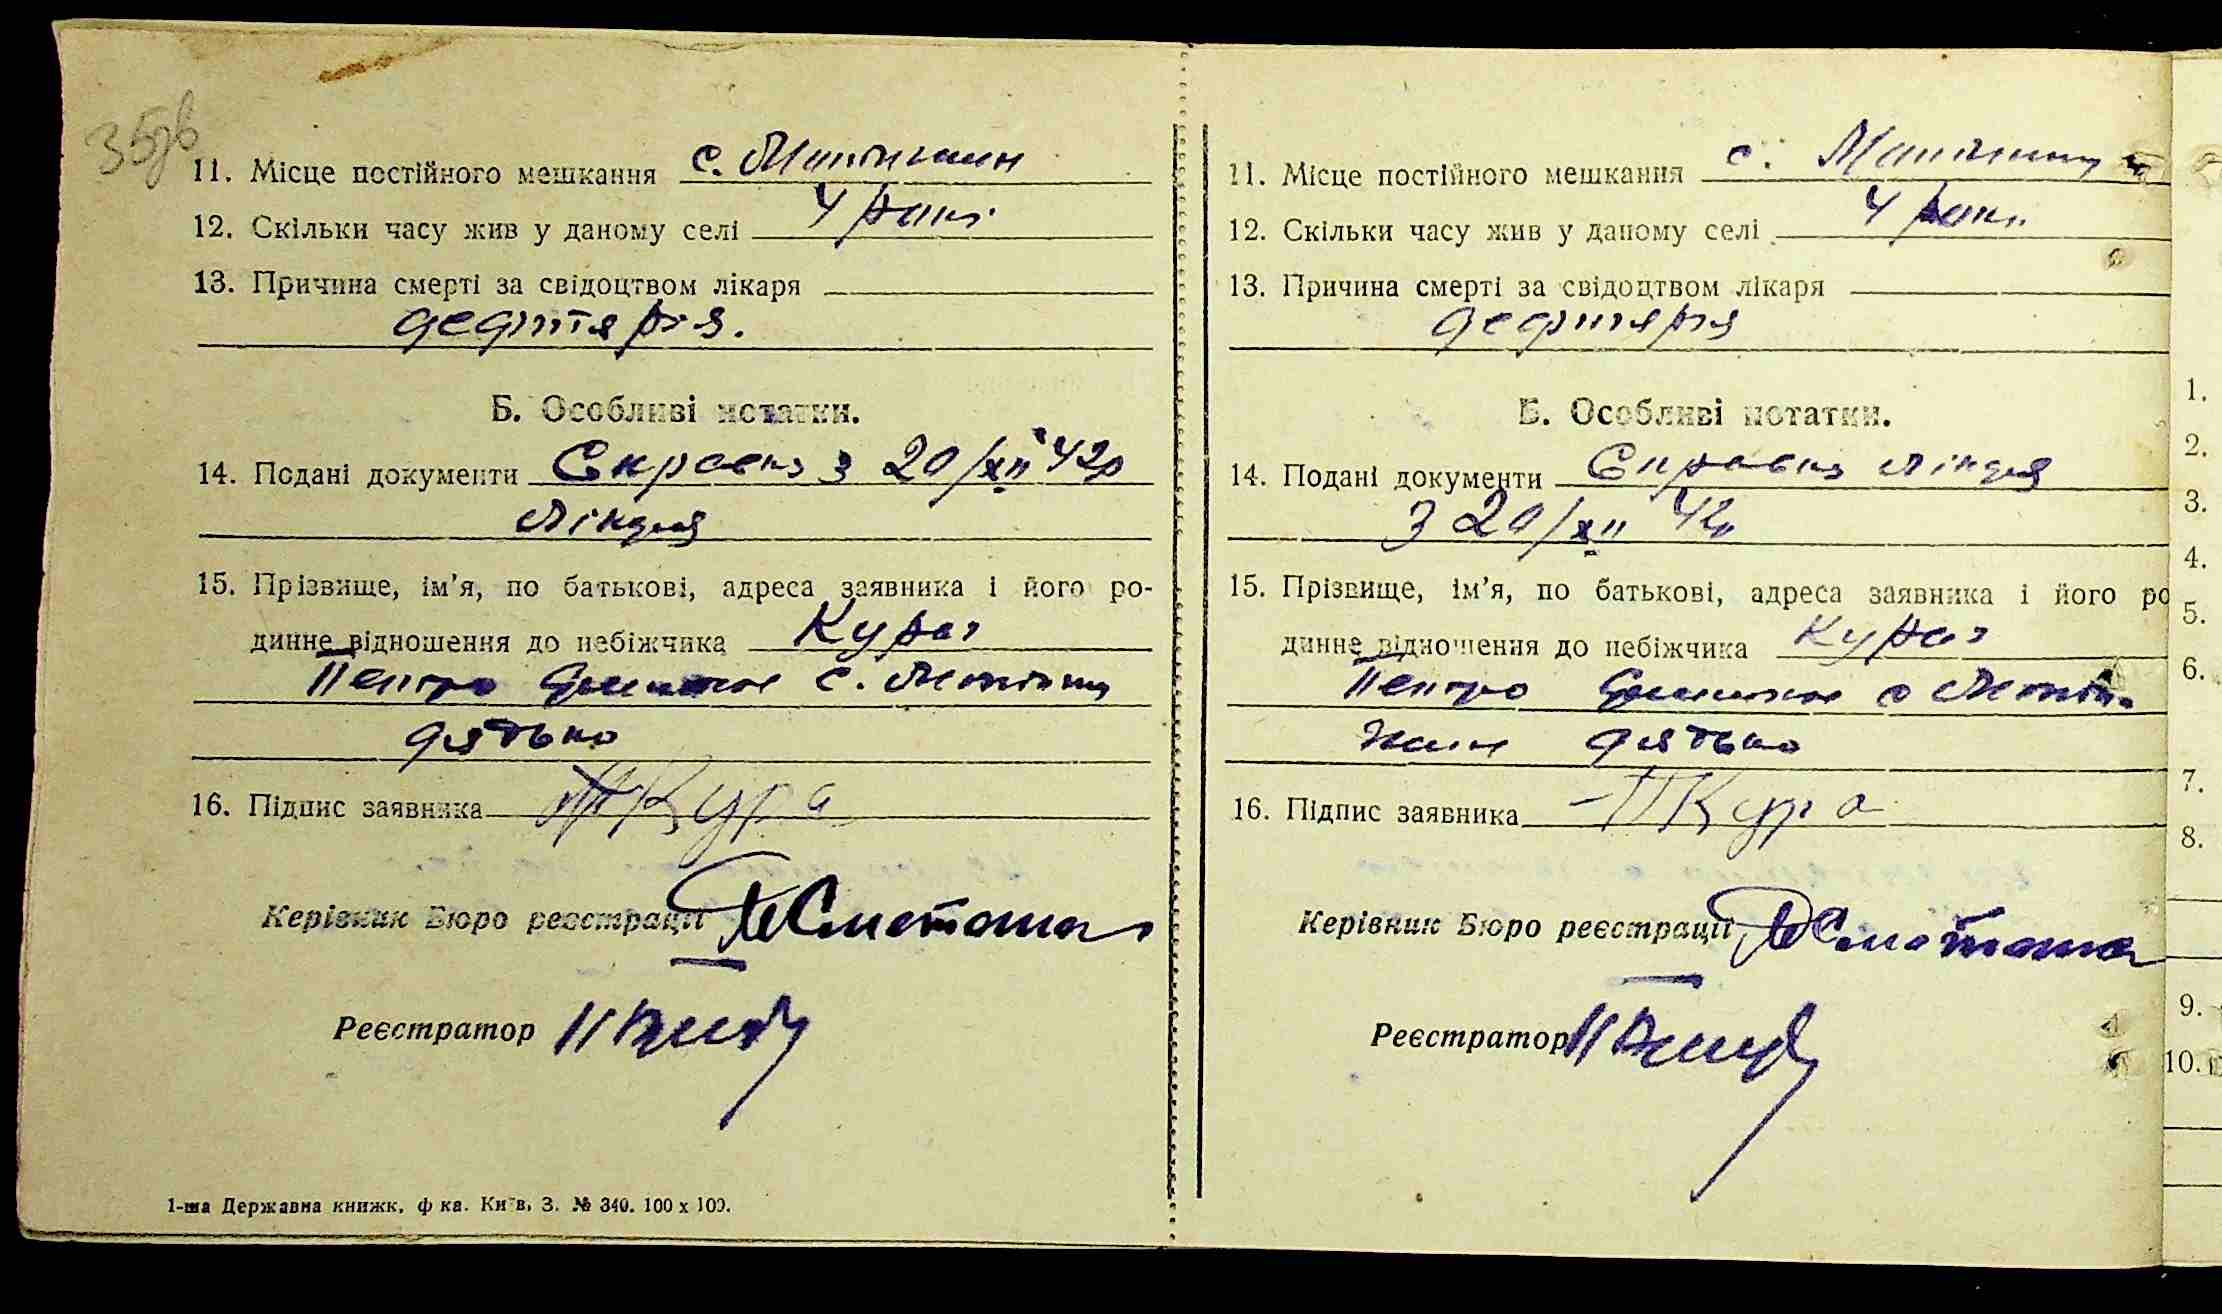 11. Місце постійного мешкання с.
12. Скільки часу жив у даному селі 4 роки
13. Причина смерті за свідоцтвом лікаря
дефтярія.
Б. Особливі нотатки.
14. Подані документи Справка з 20/XII 42р
Лікаря
15. Прізвище, ім’я, по батькові, адреса заявника і його ро-
динне відношення до небіжчика Кура
Петро с.
дядько
16. Підпис заявника ПКура
Керівник Бюро реєстрації Сметана
Реєстратор
1-ша Державна книжк. ф ка. Київ, З. № 340. 100 х 100.
11. Місце постійного мешкання с.
12. Скільки часу жив у даному селі 4 роки
13. Причина смерті за свідоцтвом лікаря
дефтярія
Б. Особливі нотатки.
14. Подані документи Справка лікаря
з 20/XII 42р
15. Прізвище, ім’я, по батькові, адреса заявника і його ро
динне відношення до небіжчика Кура
Петро с
дядько
16. Підпис заявника ПКура
Керівник Бюро реєстрації Сметана
Реєстратор
1.
2.
3.
4.
5.
6.
7.
8.
9.
10.